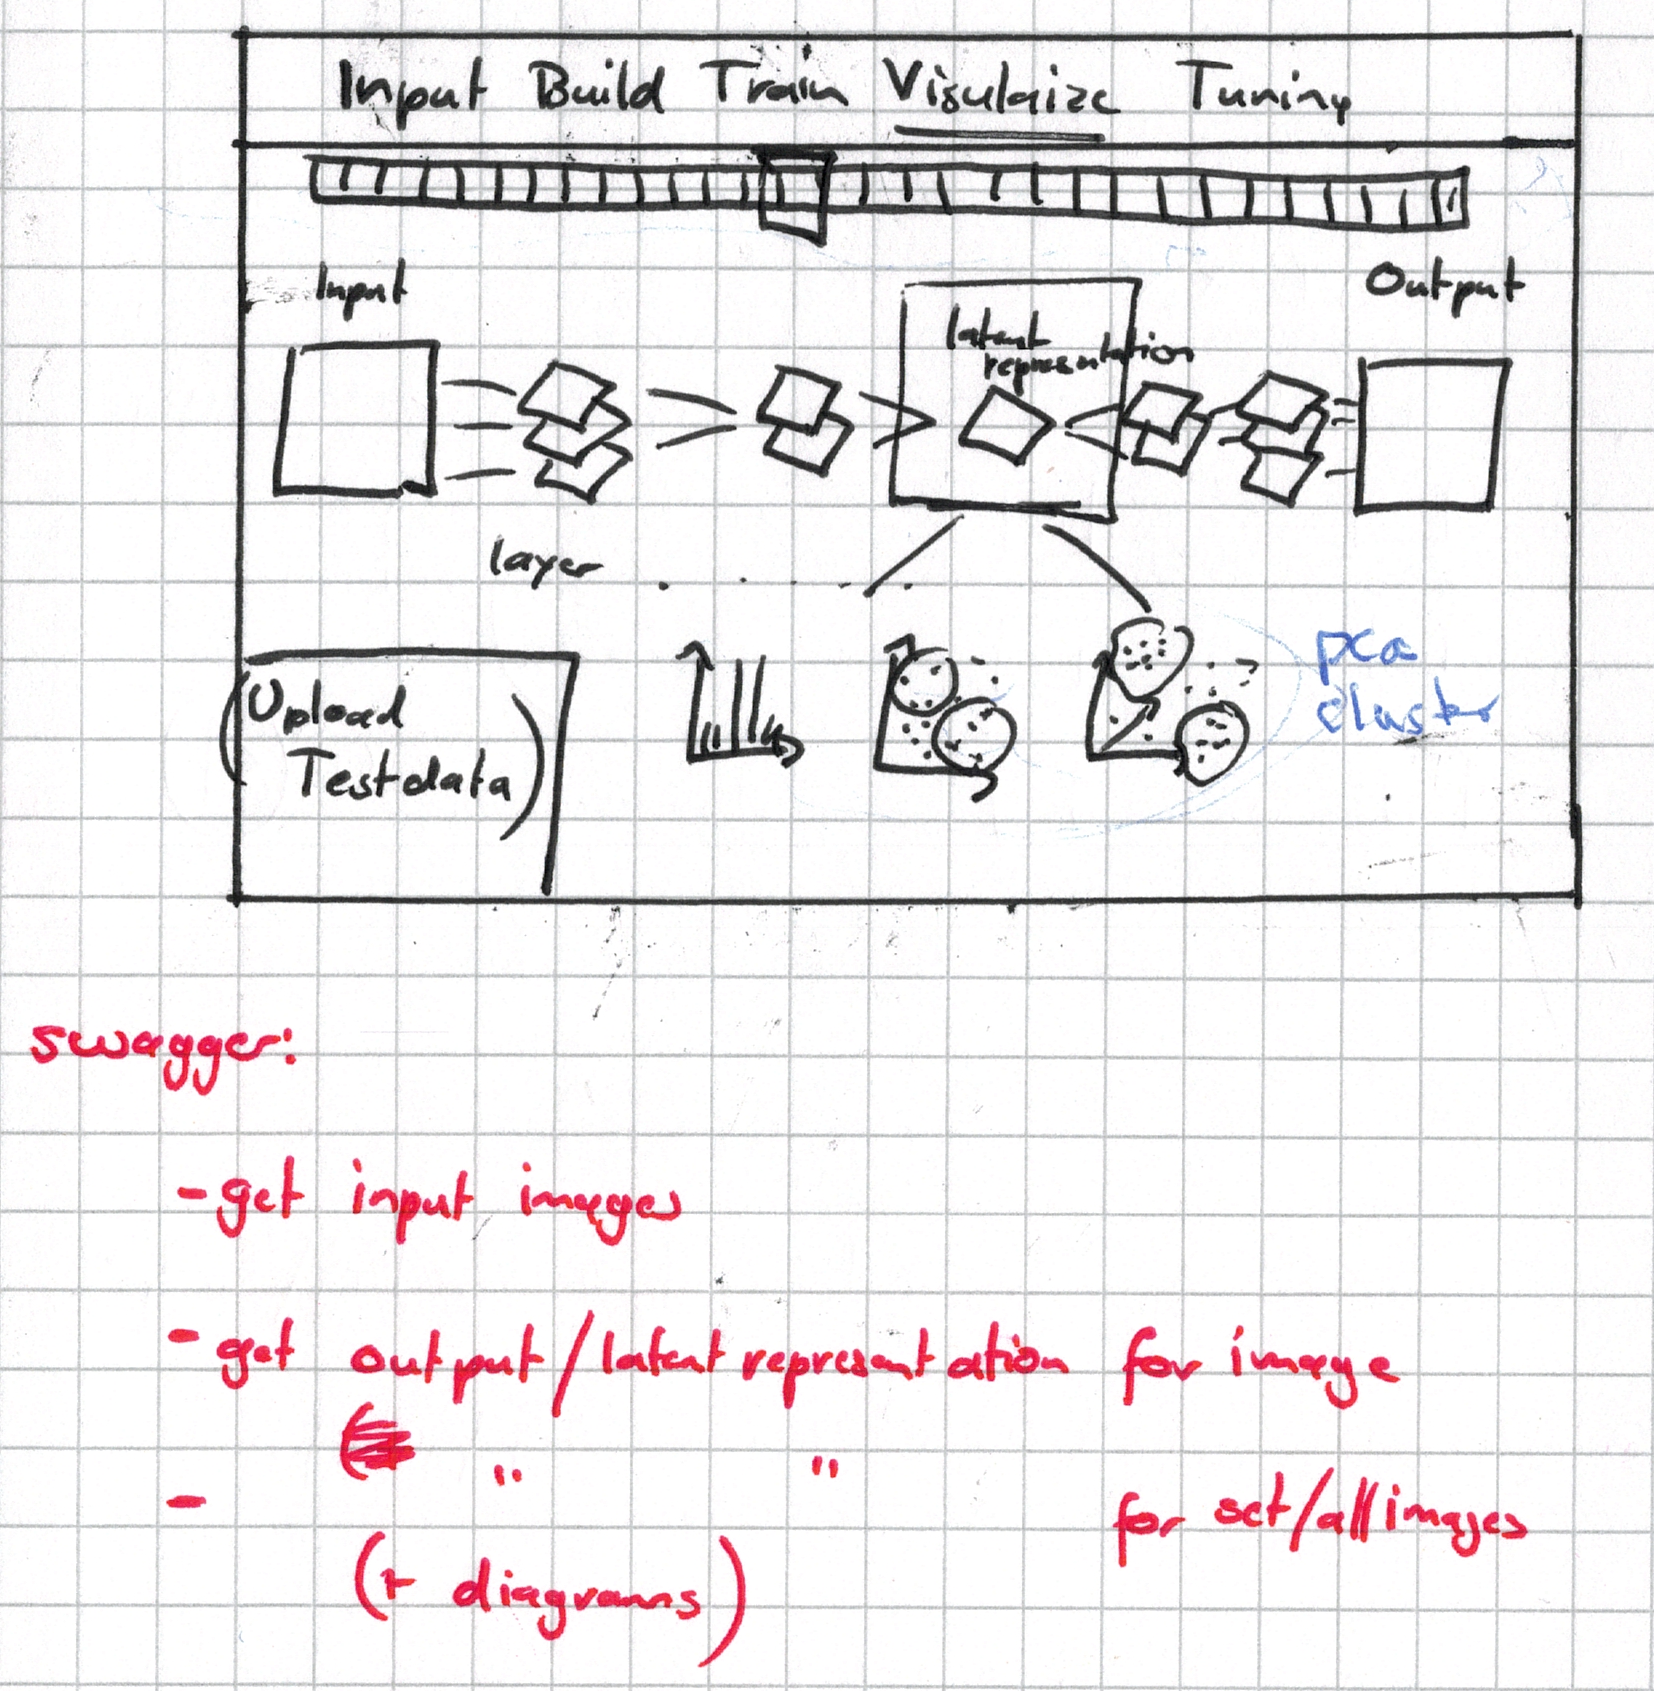 Input Build Train Visulaize Tuning
Input
Output
latent
representation
layer
(Upload
Testdata)
pca
cluster
swagger:
- get input images
- get output/latent representation for image
- " " for set/all images
(+ diagrams)